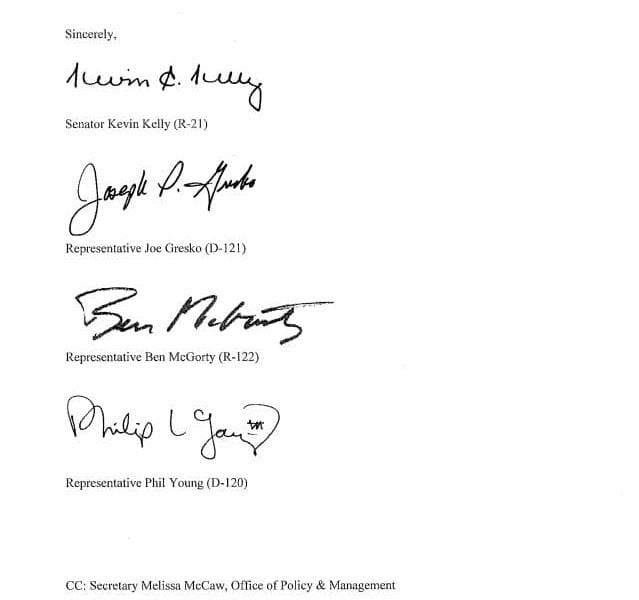 Sincerely,
Kevin C. Kelly
Senator Kevin Kelly (R-21)
Joseph P. Gresko
Representative Joe Gresko (D-121)
Ben McGorty
Representative Ben McGorty (R-122)
Philip L Young
Representative Phil Young (D-120)
CC: Secretary Melissa McCaw, Office of Policy & Management